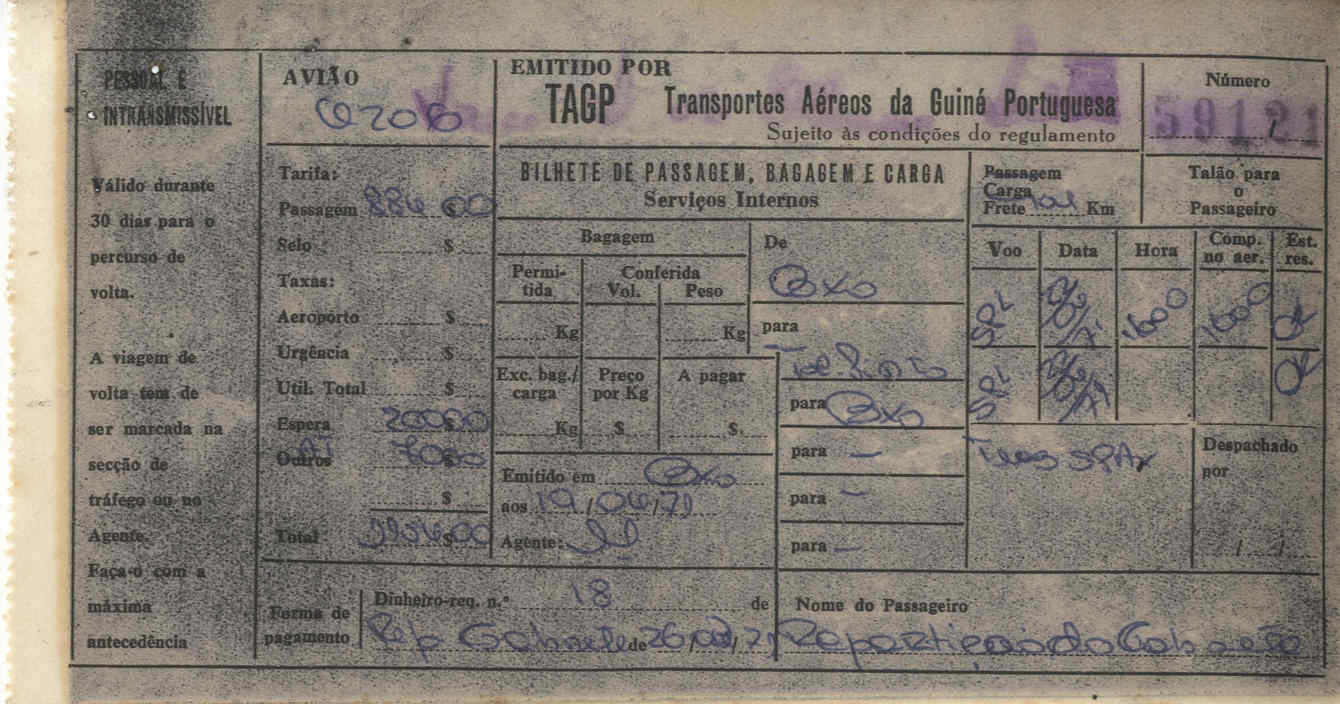 PESSOAL E
INTRANSMISSÍVEL
Válido durante
30 dias para o
percurso de
volta.
A viagem de
volta tem de
ser marcada na
secção de
tráfego ou no
Agente.
Faça-o com a
máxima
antecedência
AVIÃO
Tarifa:
Passagem $
Selo $
Taxas:
Aeroporto $
Urgência $
Util. Total $
Espera 200$00
Outros $
$
Total $
EMITIDO POR
TAGP Transportes Aéreos da Guiné Portuguesa
Sujeito às condições do regulamento
Número
59121
BILHETE DE PASSAGEM, BAGAGEM E CARGA
Serviços Internos
Passagem
Carga
Frete Km
Talão para
o
Passageiro
Bagagem
Permi-
tida
Conferida
Vol. Peso
Kg Kg
Exc. bag./
carga
Preço
por Kg
A pagar
Kg $ $
De Bxo
para
para Bxo
para —
para —
para —
Voo Data Hora Comp.
no aer. Est.
res.
1600 1600 OK
OK
Despachado
por
/ /
Emitido em Bxo
aos 19/04/71
Agente:
Forma de
pagamento
Dinheiro-req. n.º 18 de
Rep Gabinete de 26
Nome do Passageiro
Repartição do Gabinete